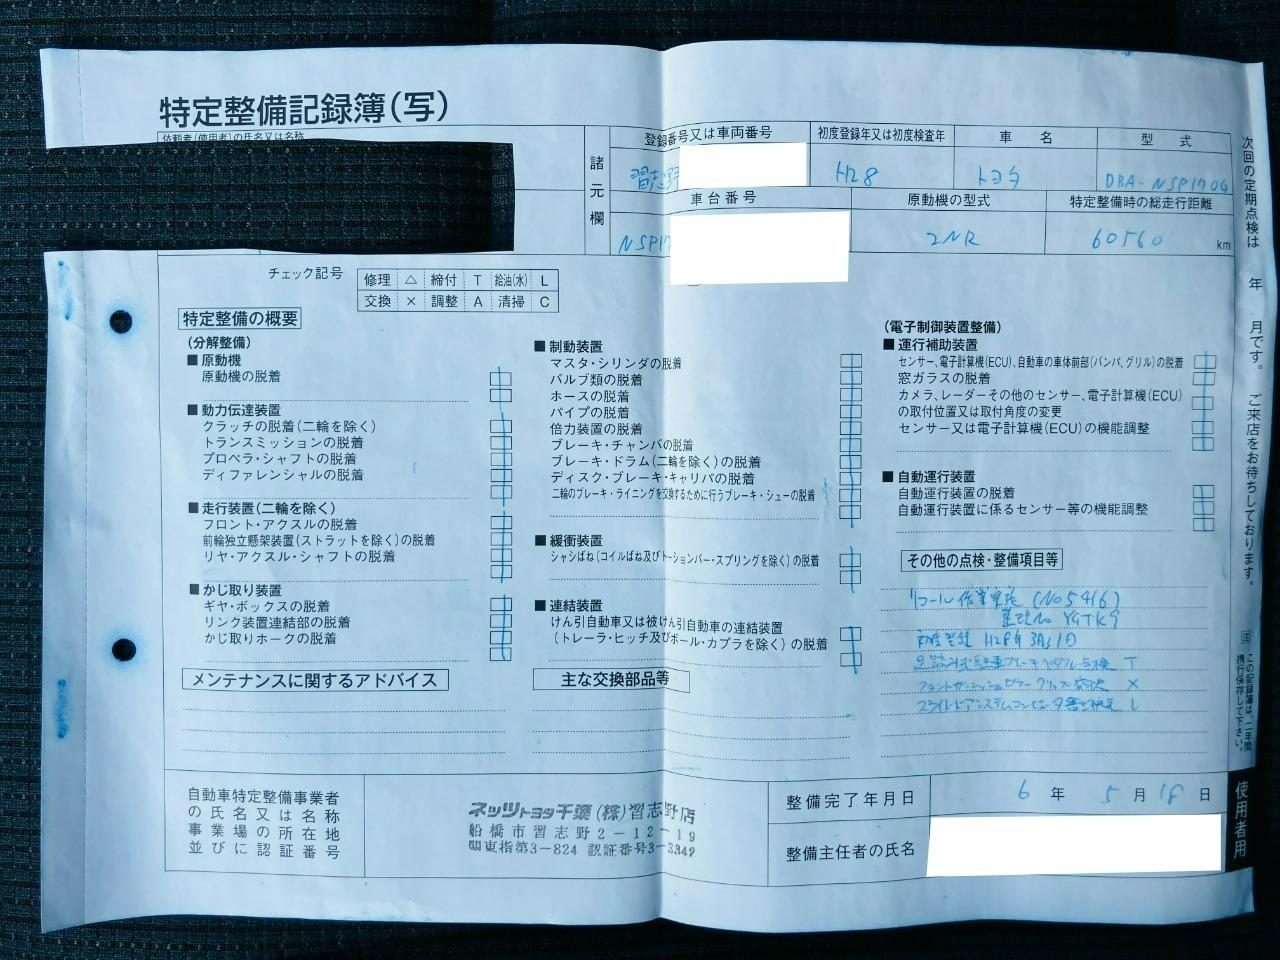 特定整備記録簿(写)
依頼者(使用者)の氏名又は名称
諸元欄
登録番号又は車両番号
初度登録年又は初度検査年
車名
型式
習志野
H28
トヨタ
DBA-NSP170G
車台番号
原動機の型式
特定整備時の総走行距離
NSP17
2NR
60560 km
チェック記号
修理 △ 締付 T 給油(水) L
交換 × 調整 A 清掃 C
特定整備の概要
(分解整備)
■原動機
原動機の脱着
■動力伝達装置
クラッチの脱着(二輪を除く)
トランスミッションの脱着
プロペラ・シャフトの脱着
ディファレンシャルの脱着
■走行装置(二輪を除く)
フロント・アクスルの脱着
前輪独立懸架装置(ストラットを除く)の脱着
リヤ・アクスル・シャフトの脱着
■かじ取り装置
ギヤ・ボックスの脱着
リンク装置連結部の脱着
かじ取りホークの脱着
メンテナンスに関するアドバイス
■制動装置
マスタ・シリンダの脱着
バルブ類の脱着
ホースの脱着
パイプの脱着
倍力装置の脱着
ブレーキ・チャンバの脱着
ブレーキ・ドラム(二輪を除く)の脱着
ディスク・ブレーキ・キャリパの脱着
二輪のブレーキ・ライニングを交換するために行うブレーキ・シューの脱着
■緩衝装置
シャシばね(コイルばね及びトーションバー・スプリングを除く)の脱着
■連結装置
けん引自動車又は被けん引自動車の連結装置
(トレーラ・ヒッチ及びボール・カプラを除く)の脱着
主な交換部品等
(電子制御装置整備)
■運行補助装置
センサー、電子計算機(ECU)、自動車の車体前部(バンパ、グリル)の脱着
窓ガラスの脱着
カメラ、レーダーその他のセンサー、電子計算機(ECU)
の取付位置又は取付角度の変更
センサー又は電子計算機(ECU)の機能調整
■自動運行装置
自動運行装置の脱着
自動運行装置に係るセンサー等の機能調整
その他の点検・整備項目等
リコール作業実施 (No5416)
No YGTK9
初度登録 H28年3月31日
足踏み式駐車ブレーキペダル点検 T
×
スライドドアシステムコンピュータ書き換え L
自動車特定整備事業者
の氏名又は名称
事業場の所在地
並びに認証番号
ネッツトヨタ千葉(株)習志野店
船橋市習志野2-12-19
関東指第3-824 認証番号3-3342
整備完了年月日
6年5月18日
整備主任者の氏名
次回の定期点検は 年 月です。ご来店をお待ちしております。
この記録簿は、二年間
携行保存して下さい。
使用者用